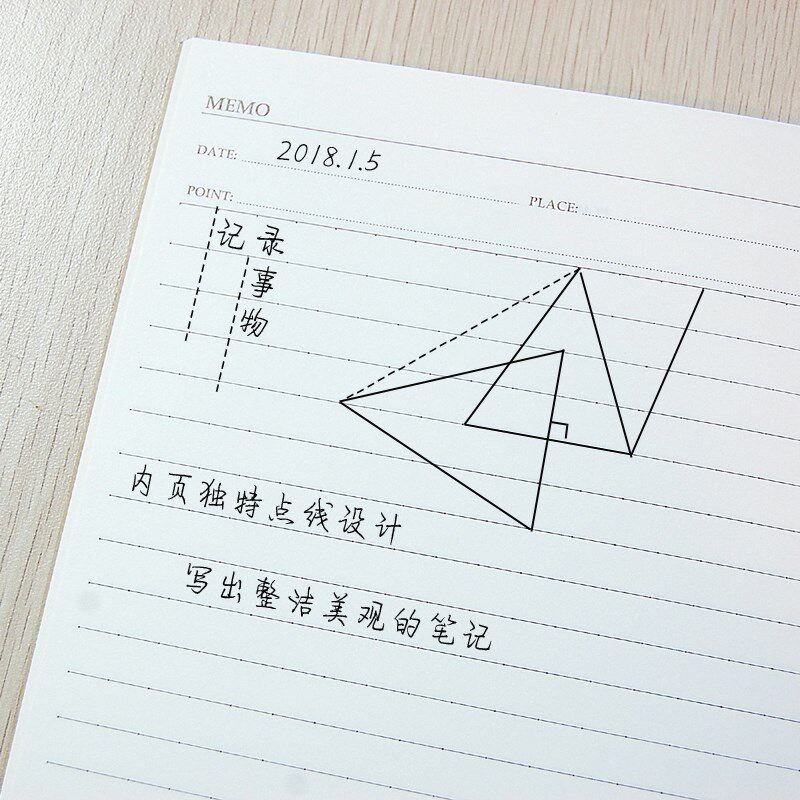 MEMO
DATE: 2018.1.5
PLACE:
POINT:
记录
事
物
内页独特点线设计
写出整洁美观的笔记